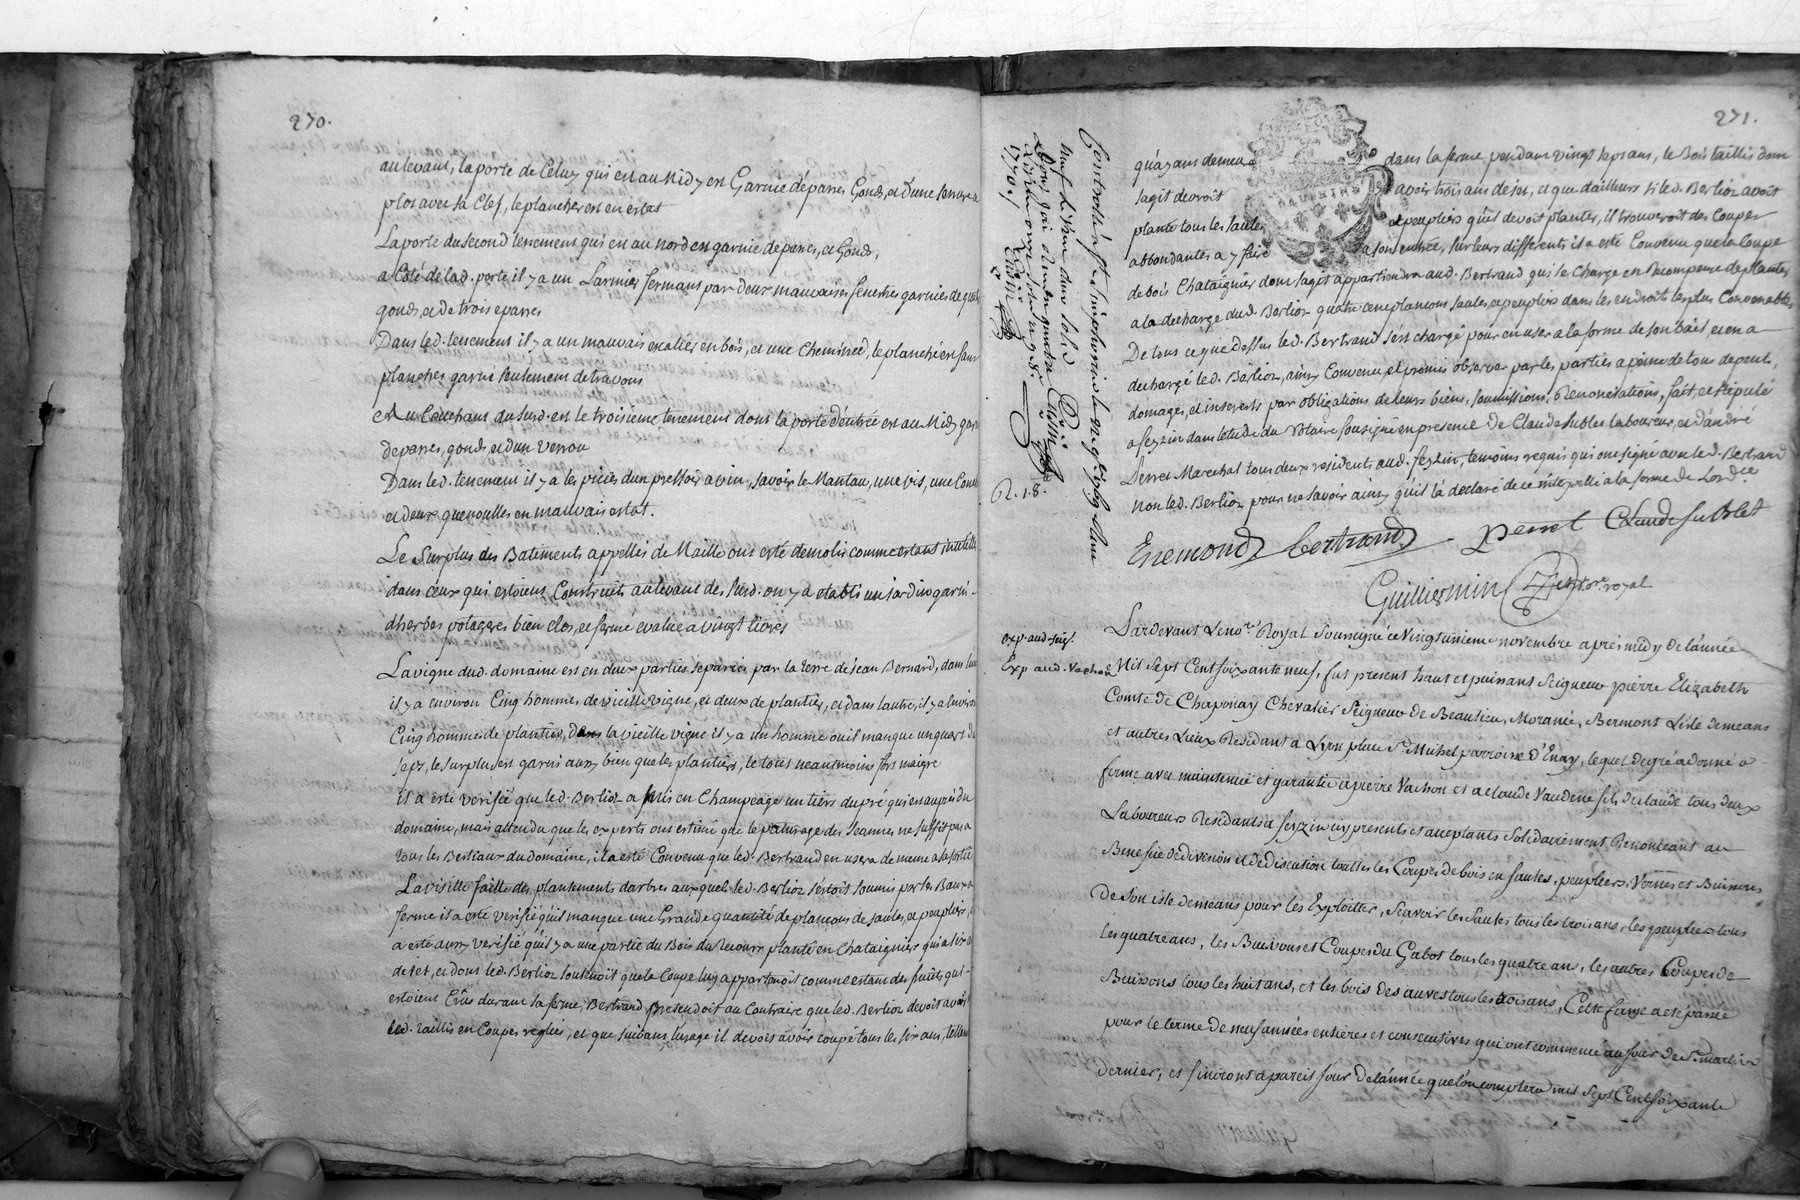 270.
au levant, la porte de Celuy qui est au Midy est Garnie d'éparres Gonds, et d'une serrure a
plos avec sa Clef, le plancher est en estat
La porte du second tenement qui est au nord est garnie de parres, et Gonds,
a Coté de lad. porte il y a un Larmier fermant par deux mauvaises fenestres garnies de quat
gonds, et de trois eparres
Dans led. tenement il y a un mauvais escalier en bois, et une Cheminée, le planché est sans
planches garni seulement de travons
et Au Couchant du susd. est le troisieme tenement dont la porte d'entrée est au Midy garn
de parres, gonds, et d'un verrou
Dans led. tenement il y a les pièces d'un pressoir a vin, savoir le Mantau, une vis, une
et deux quenouilles en mauvais estat.
Le Surplus des Batiments appellés de Maille ont esté demolis comme estant inutilles
dans ceux qui estoient Construits au levant des susd. on y a etabli un jardin garni
d'herbes potageres bien clos, et fermé evalué a vingt livres
La vigne dud. domaine est en deux parties separées par la terre de Jean Bernard, dans
il y a environ Cinq hommes de vieille vigne, et deux de plantier, et dans l'autre, il y a environ
Cinq hommes de plantier, dans la vieille vigne il y a un homme ou il manque un quart de
seps, le surplus est garni aussy bien que les plantiers, le tout neanmoins fort maigre
il a esté verifié que led. Berlioz a mis en Champéage un tiers du pré qui est auprès du
domaine, mais attendu que les experts ont estimé que le paturage des Jeannes ne suffit pas a
tous les Bestiaux du domaine, il a esté Convenu que led. Bertrand en usera de meme a sa sortie
La visitte faitte des plantements d'arbres auxquels led. Berlioz s'estoit soumis par les Baux a
ferme il a esté verifié qu'il manque une Grande quantité de plancons de saules, et peupliers,
a esté aussy verifié qu'il y a une partie du Bois du Recours planté en Chataigniers qui a six a
de jet, et dont led. Berlioz soutenoit que la Coupe luy appartenoit comme estant des fruits qui
estoient Crus durant sa ferme, Bertrand pretendoit au Contraire que led. Berlioz devoit avoir
led. taillis en Coupes reglées, et que suivant l'usage il devoit avoir coupé tous les six ans,
271.
qu'ayant demeuré dans la ferme pendant vingt sept ans, le Bois taillis dont
s'agit devroit avoir trois ans de jet, et que d'ailleurs si led. Berlioz avoit
planté tous les saules et peupliers qu'il devoit planter, il trouveroit des Coupes
abbondantes a y faire a son entrée, sur leurs differents il a esté Convenu que la Coupe
de bois Chataignier dont s'agit appartiendra aud. Bertrand qui se Charge en Recompense de planter
a la decharge dud. Berlioz quatre cent plancons saules, et peupliers dans les endroits les plus Convenables
De tout ce que Dessus led. Bertrand s'est chargé pour en user a la forme de son bail et en a
dechargé led. Berlioz, ainsy Convenu, et promis observer par les parties a peine de tous depens,
domages, et interests par obligations de leurs biens, soumissions, Renonciations, fait, et stipulé
a feyzin dans l'etude du Notaire soussigné en presence de Claude Sublet laboureur, et d'andré
Perret Marechal tous deux residents aud. feyzin, temoins requis qui ont signé avec led. Bertrand
non led. Berlioz pour ne savoir ainsy qu'il l'a declaré de ce interpellé a la forme de Lord.ce
Enemond bertrand perret Claude Sublet
Guilliermin not.re royal
Controllé a St simphorien le
neuf
1770.
R. 18.
exp. aud. seig.
Exp. aud. Vachon
Pardevant Le no.re Royal Soussigné ce Vingt unieme novembre apres midy de l'année
Mil Sept Cent soixante neuf, fut present haut et puissant Seigneur pierre Elizabeth
Comte de Chaponay Chevalier Seigneur de Beaulieu, Morancé, Bermont L'isle demeans
et autres Lieux Residant a Lyon place St Michel parroisse d'Enay, lequel degré a donné a
ferme avec maintenue et garantie a pierre Vachon et a claude Vaudene fils de claude tous deux
Laboureurs Residants a feyzin icy presents et acceptants Solidairement Renonceant au
Benefice de division et de discution touttes les Coupes de bois en sautes, peupliers, Vernes et Buissons
de son isle demeans pour les Exploitter, Scavoir les sautes tous les trois ans, les peupliers tous
les quatre ans, les Buissons et Coupes du Gabot tous les quatre ans, les autres Coupes de
Buissons tous les huit ans, et les bois des auves tous les trois ans, Cette ferme a esté passée
pour le terme de neuf années entières et consecutives qui ont commencé au jour de St martin
dernier, et finiront a pareil jour De l'année que l'on comptera mil Sept Cent soixante